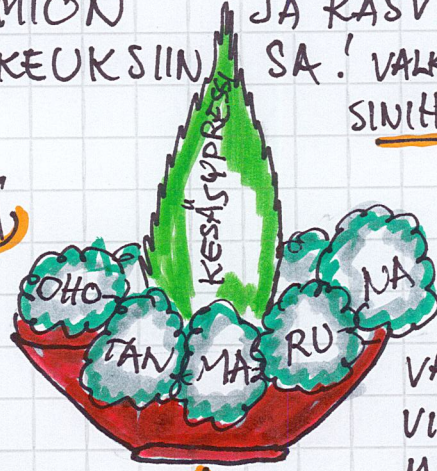 MION JA KASV
KEUKSIIN SA! VALK
SINIH
KESÄSYPRESSI
OHO-
TAN
MA
RU
NA
VA
VI